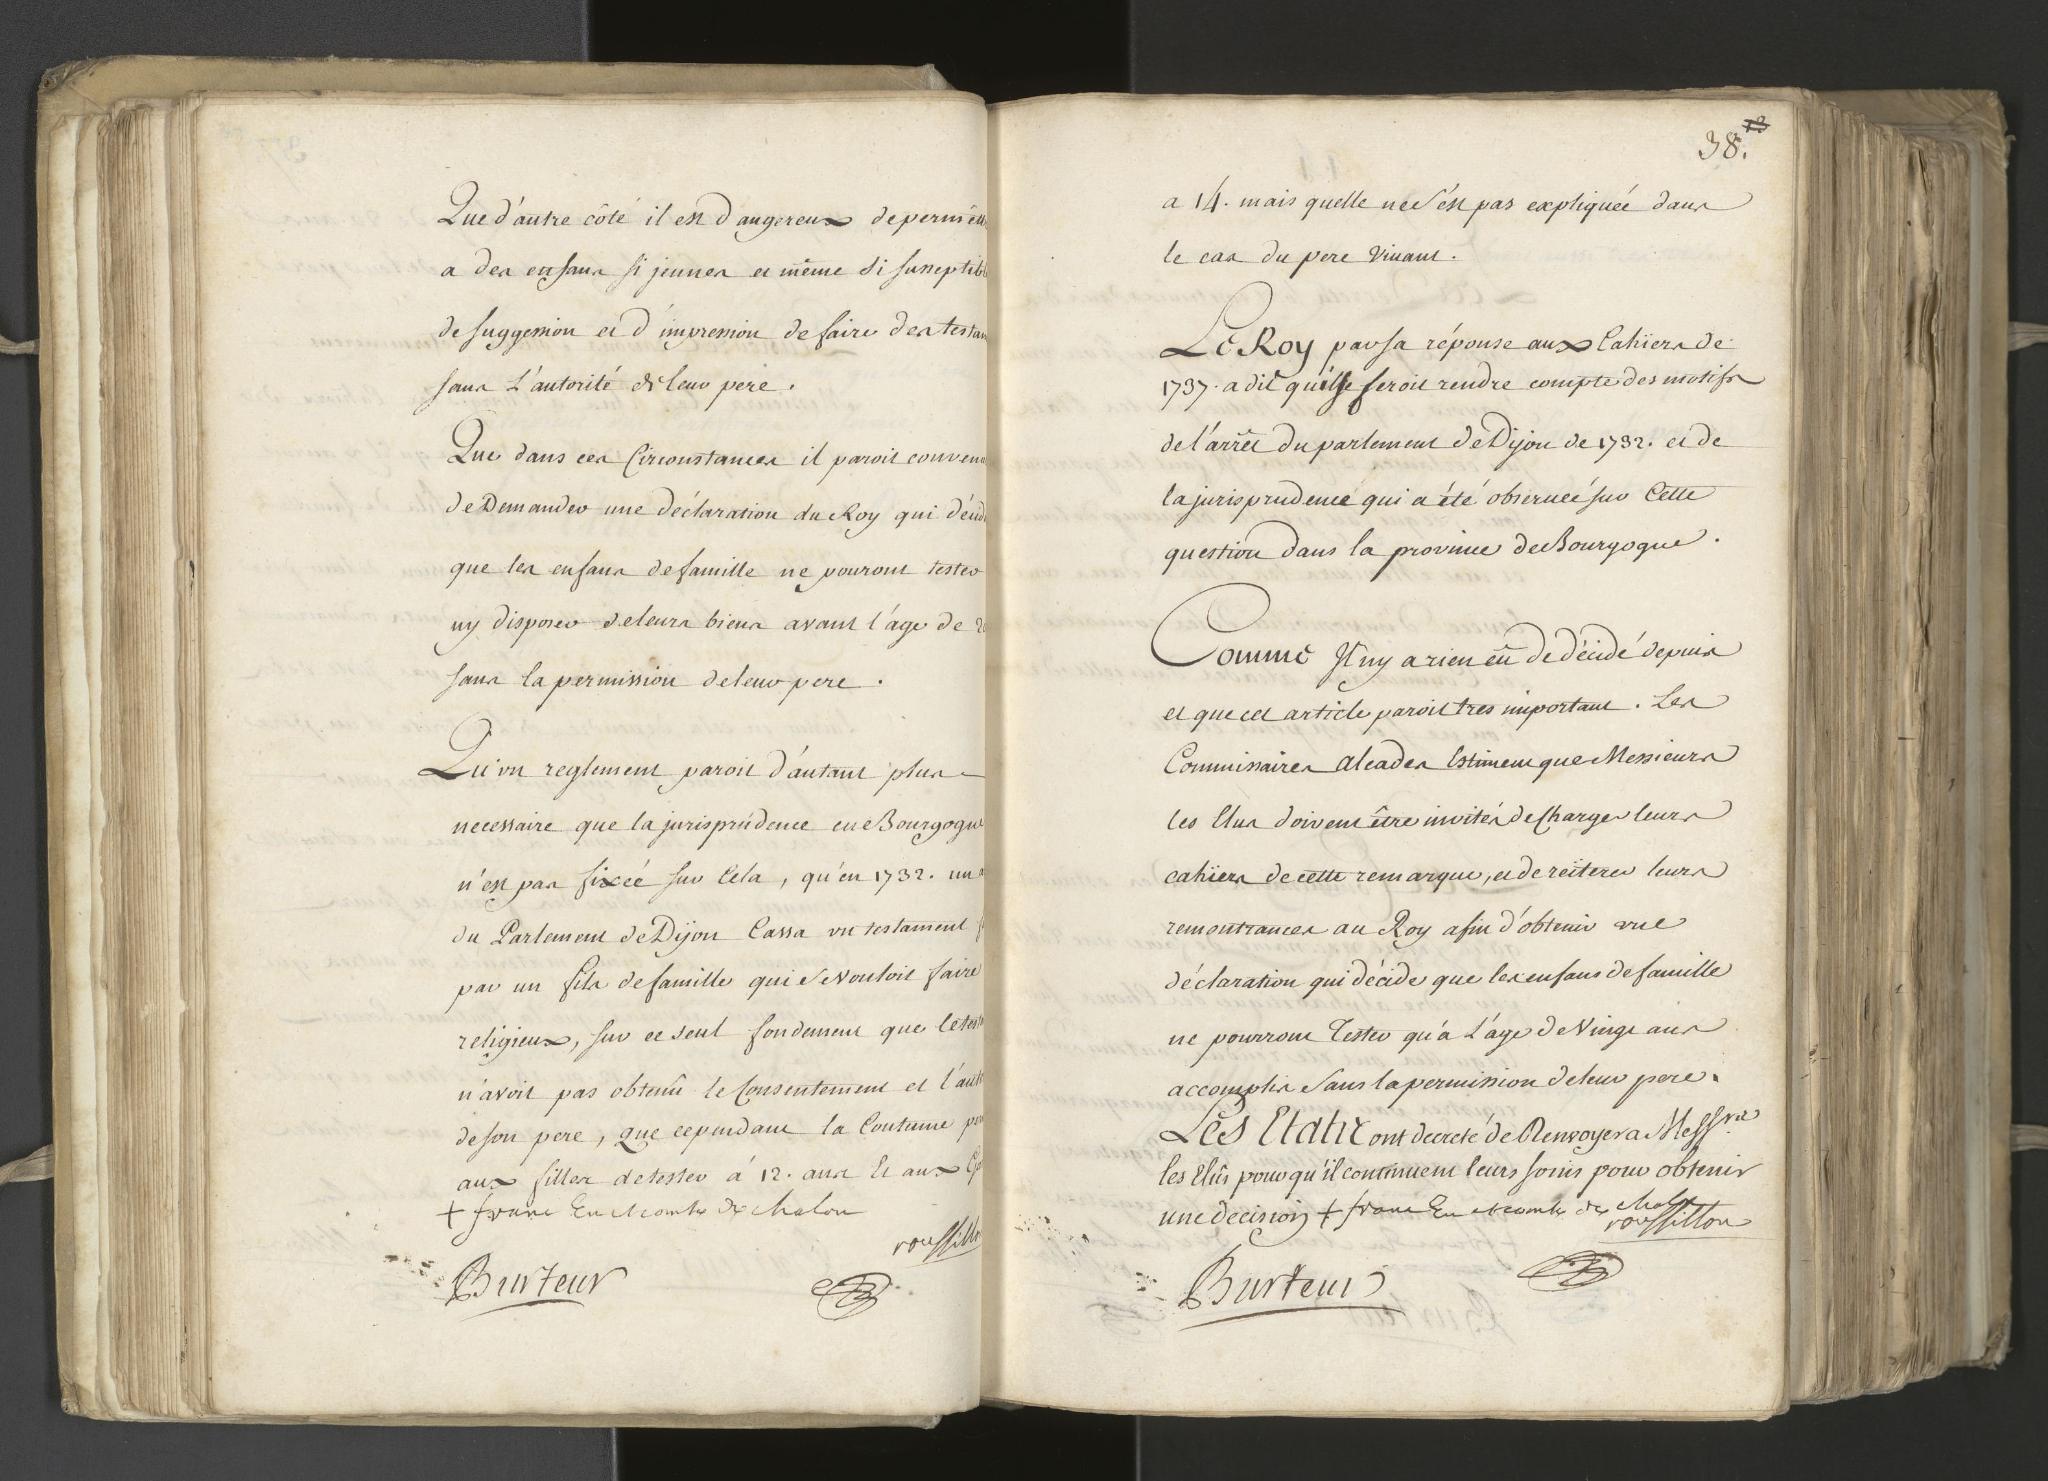 Que d'autre côté il est dangereux de permett
a des enfans si jeunes et même si susseptibl
de suggession et d'impression de faire des testam
sans L'autorité de leur pere .
Que dans ces Circonstances il paroit convena
de Demander une déclaration du Roy qui décid
que les enfans de famille ne pouront tester
ny disposer de leurs biens avant l'âge de 20
sans la permission de leur pere .
Qu'un reglement paroit d'autant plus
necessaire que la jurisprudence en Bourgogne
n'est pas fixée sur Cela , qu'en 1732. un a
du Parlement de Dijon Cassa un testament f
par un fils de famille qui se vouloit faire
religieux, sur ce seul fondement que le test
n'avoit pas obtenû le Consentement et l'auto
de son pere , que cependant la Coutume per
aux filles de tester à 12. ans Et aux
+ franc Eu et comte de chalon
roussillon
Burteur
38.
a 14. mais quelle ne s'est pas expliquée dans
le cas du pere vivant .
Le Roy par sa réponse aux Cahiers de
1737. a dit qu'il se feroit rendre compte des motifs
de l'arrêt du parlement de Dijon de 1732. et de
la jurisprudence qui a été observée sur Cette
question dans la province de Bourgogne .
Comme Il n'y a rien eû de décidé depuis
et que cet article paroit tres important . Les
Commissaires Alcades Estiment que Messieurs
les Elus doivent être invités de Charger leurs
cahiers de cette remarque, et de reïterer leurs
remontrances au Roy afin d'obtenir une
déclaration qui décide que les enfans de famille
ne pourront Tester qu'à L'âge de Vingt ans
accomplis sans la permission de leur pere .
Les Etats ont decreté de Renvoyer a Messrs
les Elûs pour qu'il continuent leurs soins pour obtenir
une decision + franc Eu et comte de chalon
roussillon
Burteur